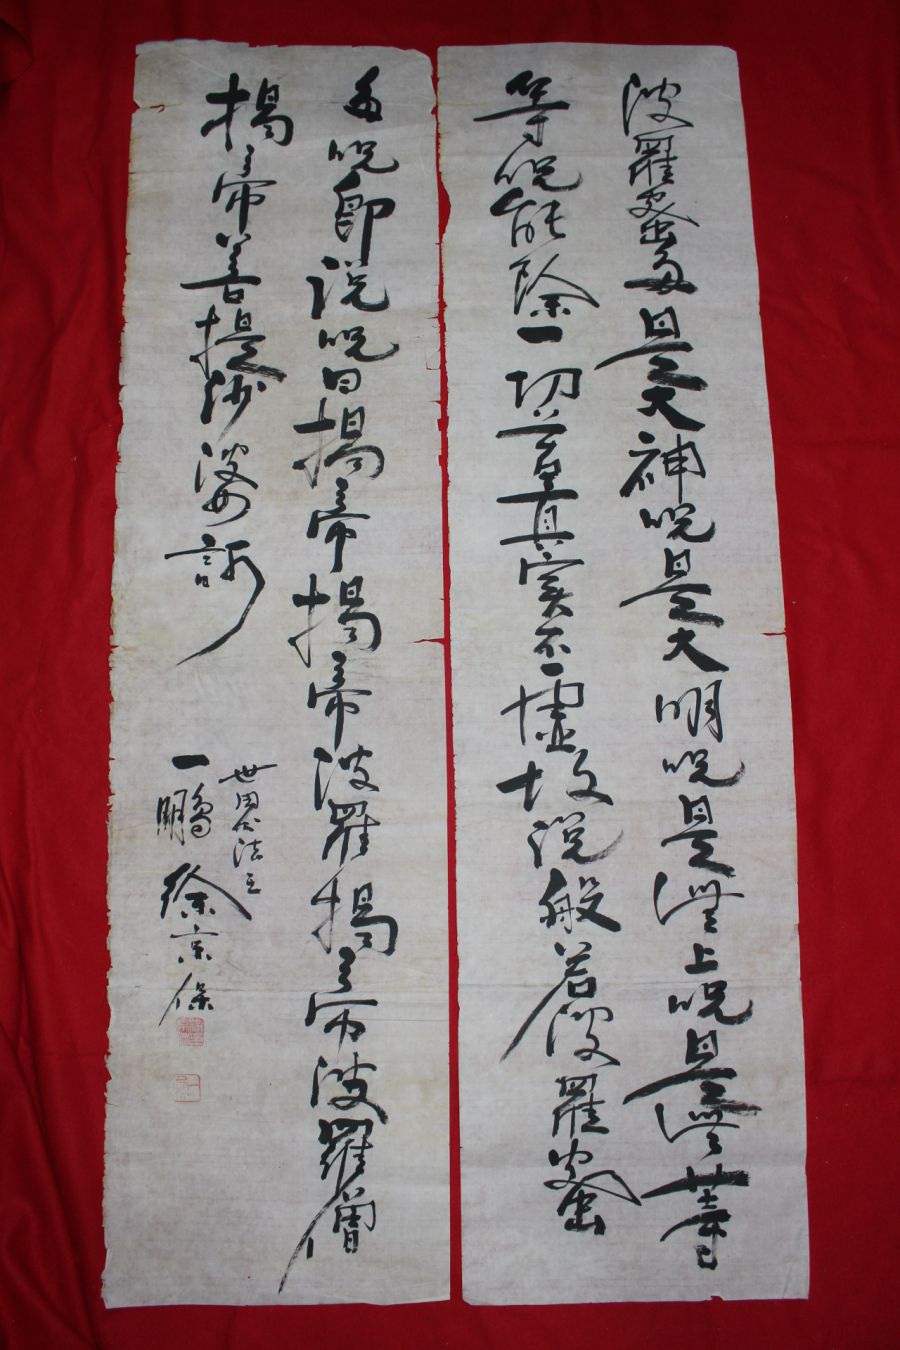 波羅蜜多是大神呪是大明呪是無上呪是無等
等呪能除一切苦真實不虛故說般若波羅蜜
多呪即說呪曰揭帝揭帝波羅揭帝波羅僧
揭帝菩提沙婆訶
世界法王
一鵬 徐京保